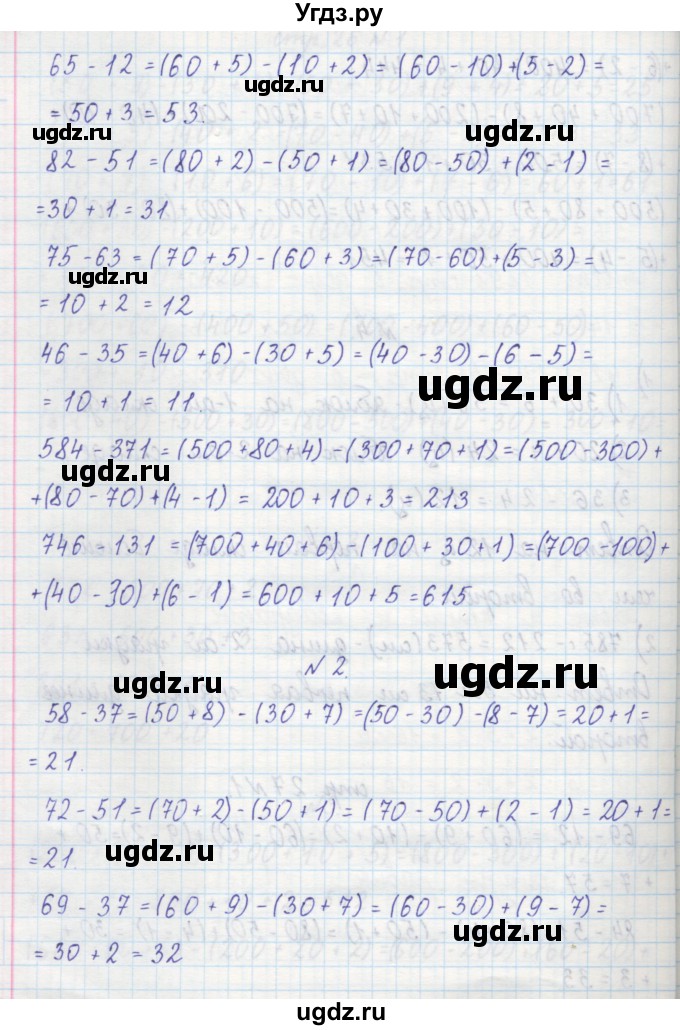 Угдз.ру
65 - 12 = (60 + 5) - (10 + 2) = (60 - 10) + (5 - 2) =
ugdz.ru
= 50 + 3 = 53.
ugdz.ru
ugdz.ru
82 - 51 = (80 + 2) - (50 + 1) = (80 - 50) + (2 - 1) =
= 30 + 1 = 31.
75 - 63 = (70 + 5) - (60 + 3) = (70 - 60) + (5 - 3) =
ugdz.ru
= 10 + 2 = 12
46 - 35 = (40 + 6) - (30 + 5) = (40 - 30) - (6 - 5) =
ugdz.ru
= 10 + 1 = 11.
584 - 371 = (500 + 80 + 4) - (300 + 70 + 1) = (500 - 300) +
ugdz.ru
+ (80 - 70) + (4 - 1) = 200 + 10 + 3 = 213
746 - 131 = (700 + 40 + 6) - (100 + 30 + 1) = (700 - 100) +
ugdz.ru
+ (40 - 30) + (6 - 1) = 600 + 10 + 5 = 615.
№ 2.
ugdz.ru
ugdz.ru
58 - 37 = (50 + 8) - (30 + 7) = (50 - 30) - (8 - 7) = 20 + 1 =
= 21.
72 - 51 = (70 + 2) - (50 + 1) = (70 - 50) + (2 - 1) = 20 + 1 =
ugdz.ru
= 21.
69 - 37 = (60 + 9) - (30 + 7) = (60 - 30) + (9 - 7) =
ugdz.ru
= 30 + 2 = 32
ugdz.ru